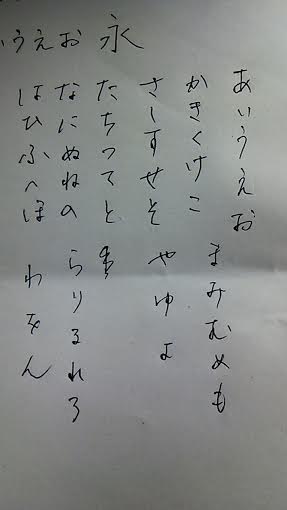 うえお 永
あいうえお
かきくけこ
さしすせそ
たちつてと
なにぬねの
はひふへほ
まみむめも
やゆよ
らりるれろ
わをん